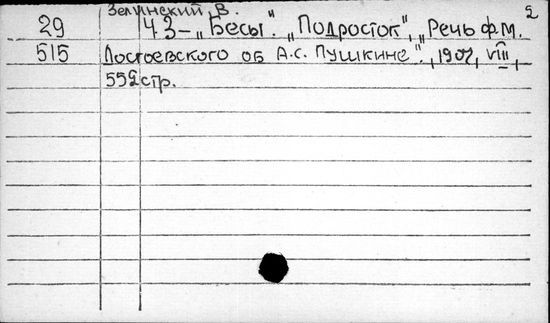 Зелинский В. 2
29 Ч 3 – „Бесы". „Подросток", „Речь Ф.М.
515 Достоевского об А.С. Пушкине"., 1907, VIII,
552 стр.